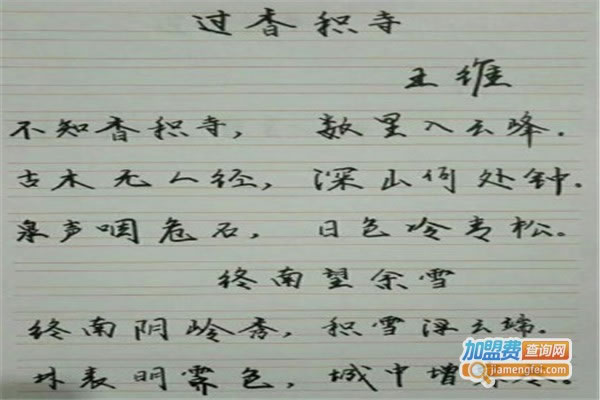 过香积寺
王维
不知香积寺， 数里入云峰.
古木无人径， 深山何处钟.
泉声咽危石， 日色冷青松。
终南望余雪
终南阴岭秀，积雪浮云端.
林表明霁色，城中增
加盟费查询网
jiamengfei.com